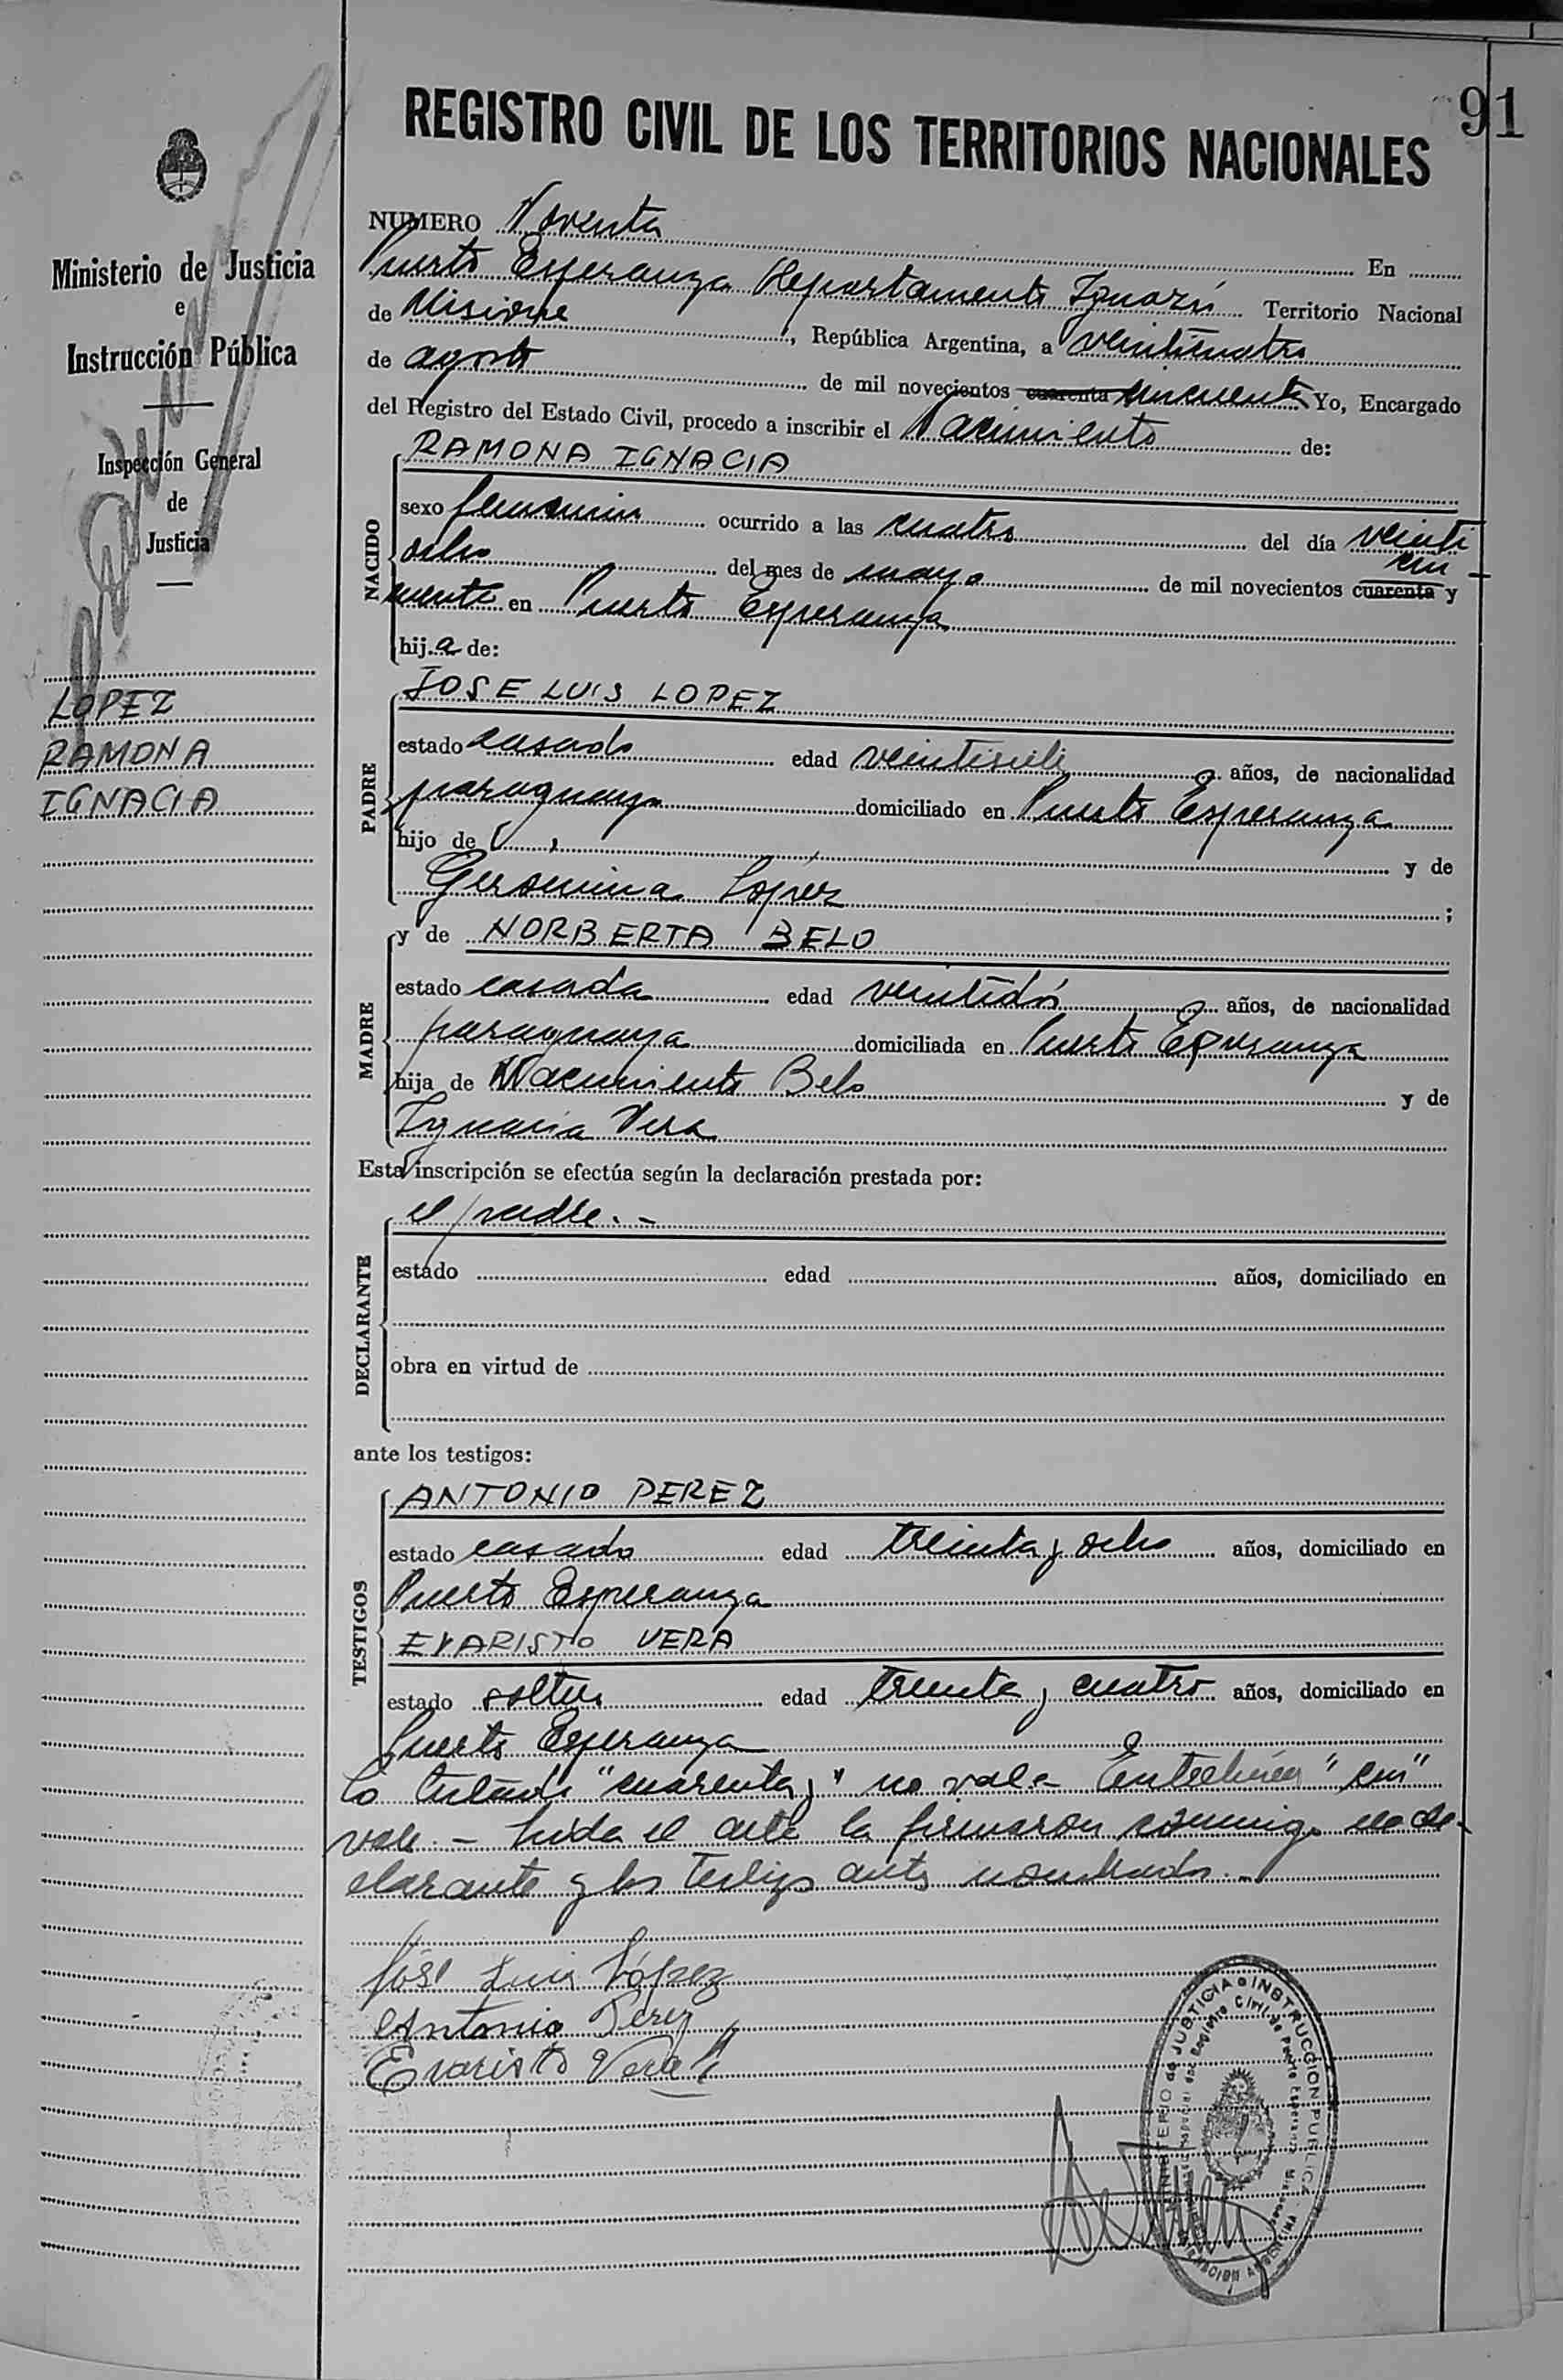 91
REGISTRO CIVIL DE LOS TERRITORIOS NACIONALES
Ministerio de Justicia
e
Instrucción Pública
Inspección General
de
Justicia
LOPEZ
RAMONA
IGNACIA
NUMERO Noventa En
Puerto Esperanza Departamento Iguazú Territorio Nacional
de Misiones, República Argentina, a veinticuatro
de agosto de mil novecientos cuarenta cincuenta Yo, Encargado
del Registro del Estado Civil, procedo a inscribir el Nacimiento de:
NACIDO
RAMONA IGNACIA
sexo femenino ocurrido a las cuatro del día veinti
ocho del mes de mayo de mil novecientos cuarenta y cin
cuenta en Puerto Esperanza
hija de:
PADRE
JOSE LUIS LOPEZ
estado casado edad veintisiete años, de nacionalidad
paraguaya domiciliado en Puerto Esperanza
hijo de y de
Geronima López ;
MADRE
y de NORBERTA BELO
estado casada edad veintidós años, de nacionalidad
paraguaya domiciliada en Puerto Esperanza
hija de Nacimiento Belo y de
Ignacia Vera
Esta inscripción se efectúa según la declaración prestada por:
DECLARANTE
el padre.-
estado edad años, domiciliado en
obra en virtud de
ante los testigos:
TESTIGOS
ANTONIO PEREZ
estado casado edad treinta y ocho años, domiciliado en
Puerto Esperanza
EVARISTO VERA
estado soltero edad treinta y cuatro años, domiciliado en
Puerto Esperanza
Lo testado "cuarenta y" no vale Entrelínea "cin"
vale.- Leida el acta la firmaron conmigo el de-
clarante y los testigos antes nombrados.-
José Luis López
Antonio Perez
Evaristo Vera
MINISTERIO de JUSTICIA e INSTRUCCION PUBLICA
Registro Civil de Puerto Esperanza Misiones